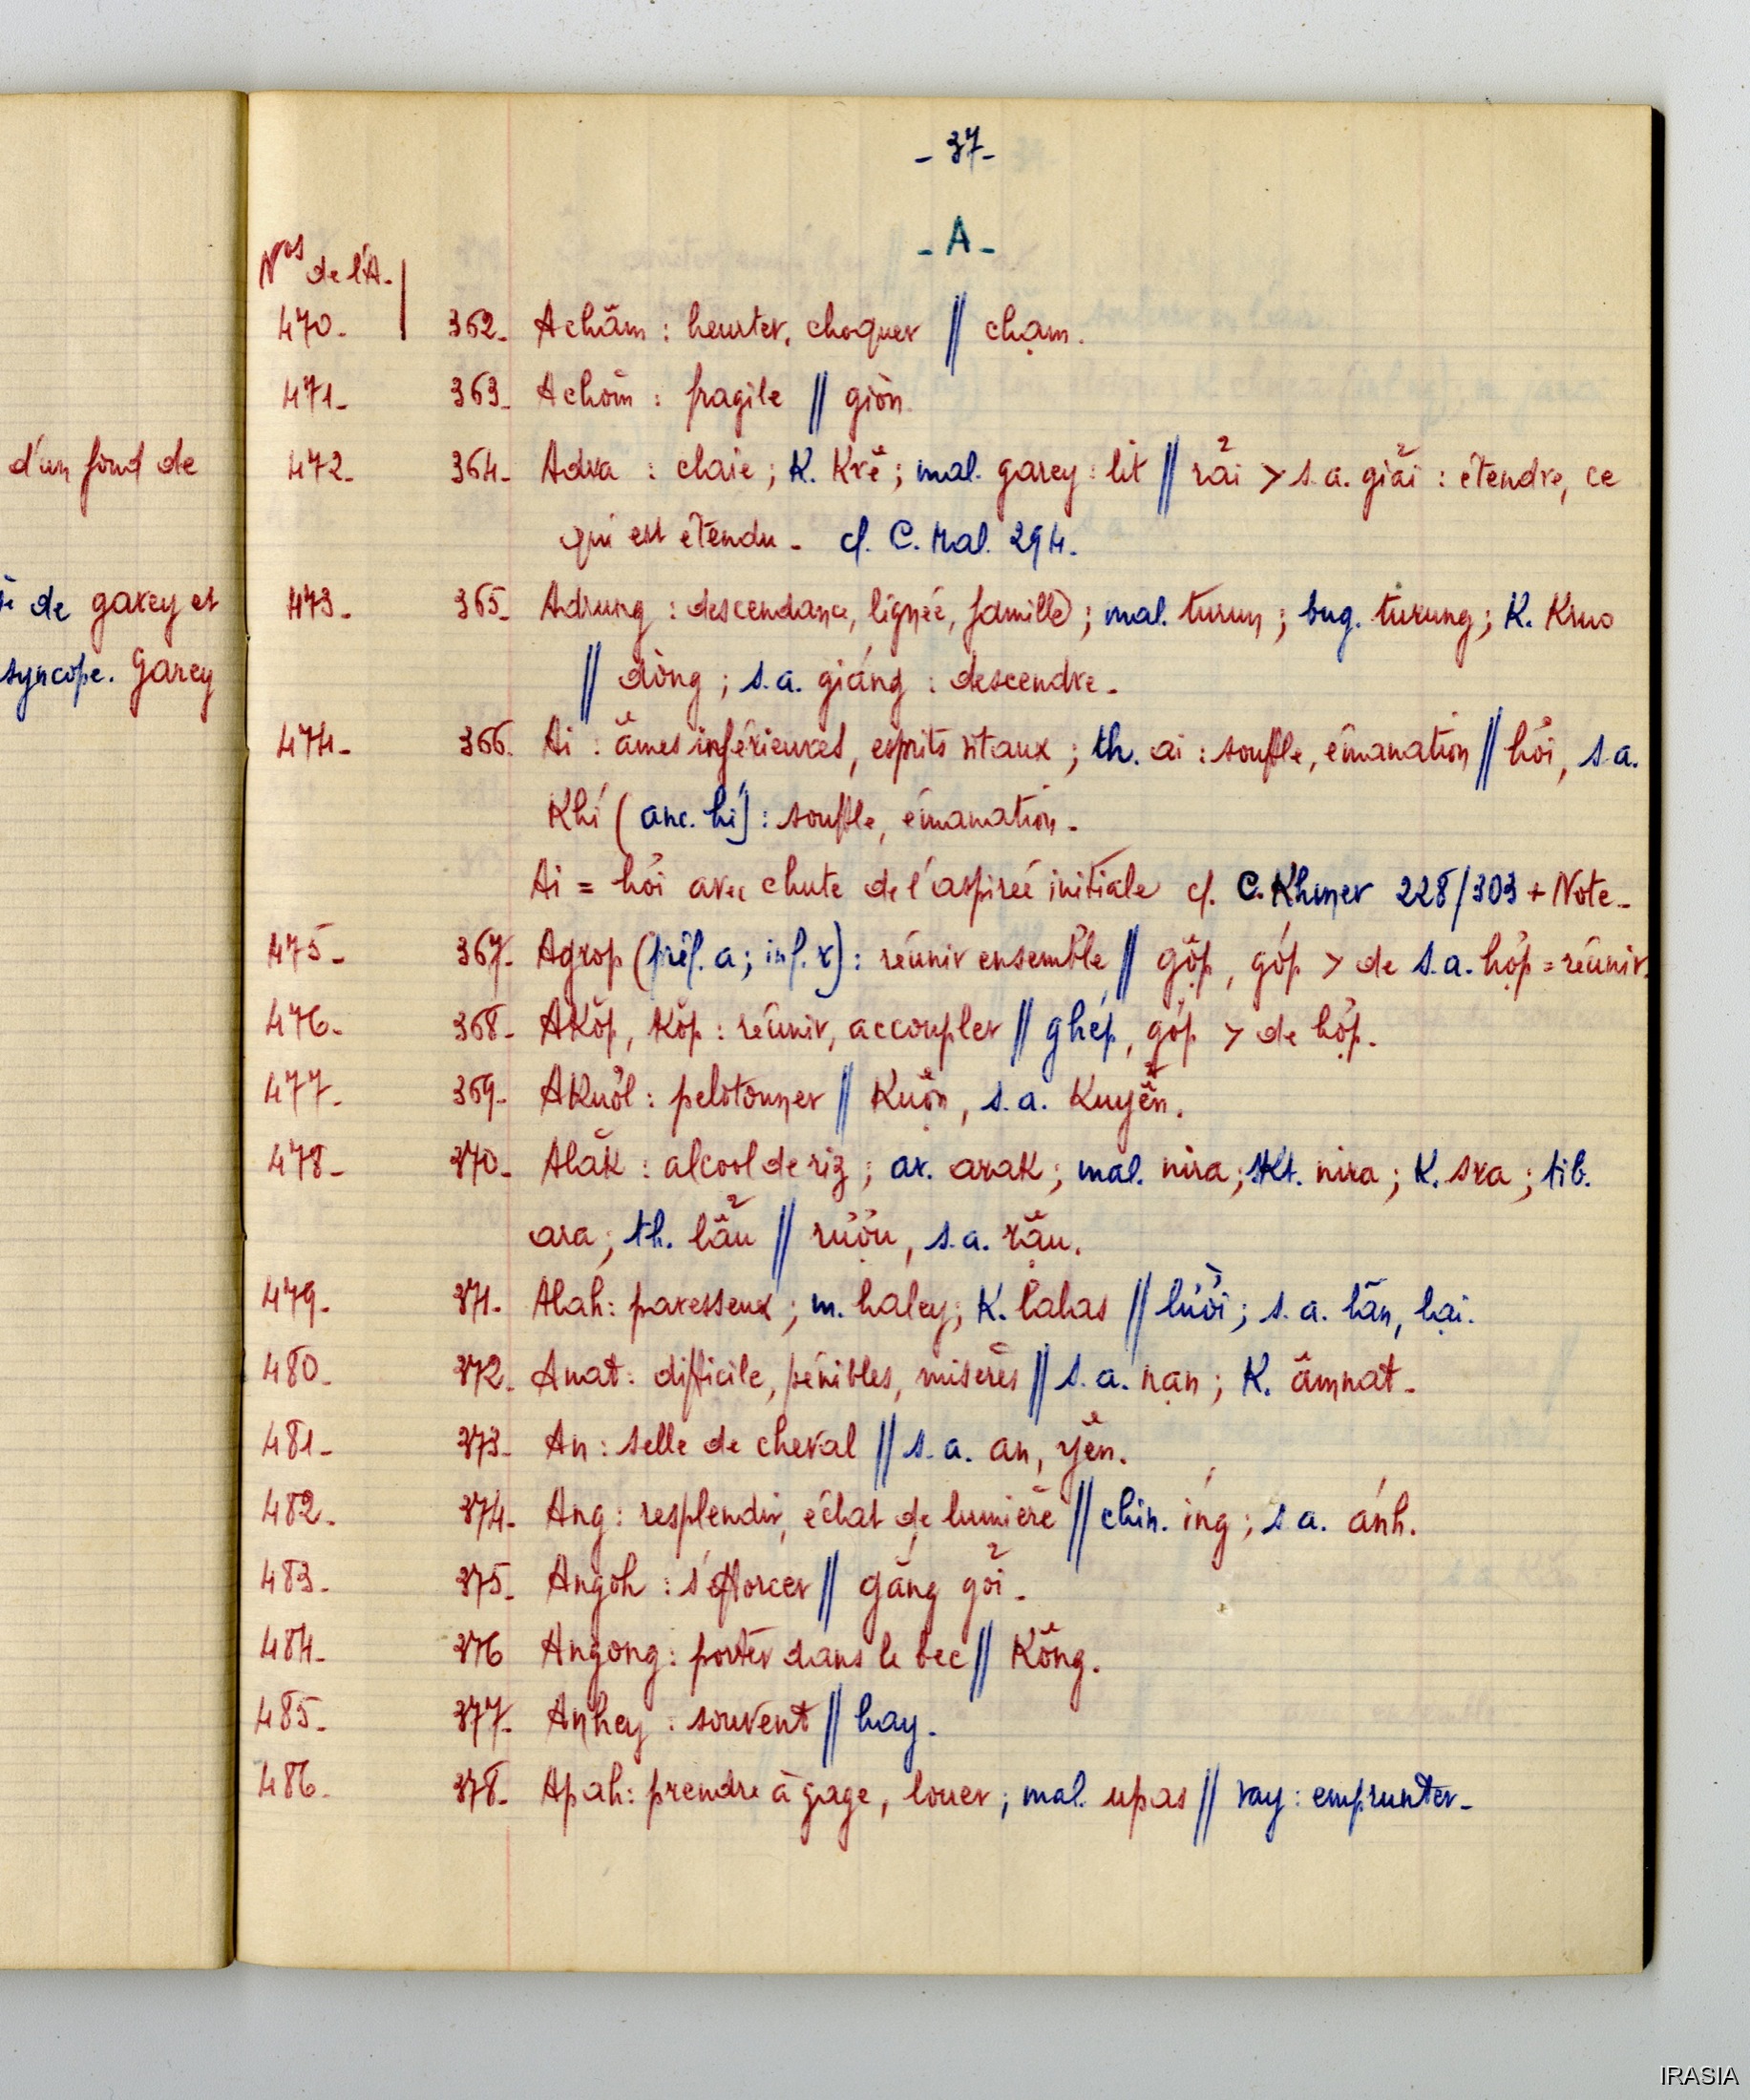 d'un fond de
de garey et
syncope. Garey
- 37 -
- A -
Nos de l'A.
470. 362. Achăm : heurter, choquer // chạm.
471. 363. Achòm : fragile // giòn.
472. 364. Adra : claie ; K. Krê ; mal. garey : lit // rải > s.a. giải : étendre, ce
qui est étendu. cf. C. Mal. 294.
473. 365. Adrung : descendance, lignée, famille ; mal. turun ; bug. turung ; K. Kruo
// dòng ; s.a. giáng : descendre.
474. 366. Ai : âmes inférieures, esprits vitaux ; th. ai : souffle, émanation // hơi, s.a.
Khí (anc. hí) : souffle, émanation.
Ai = hơi avec chute de l'aspirée initiale cf. C. Khmer 228/303 + Note.
475. 367. Agrop (préf. a ; inf. r) : réunir ensemble // gộp, góp > de s.a. hợp = réunir.
476. 368. Akŏp, kŏp : réunir, accoupler // ghép, góp > de hợp.
477. 369. Akuôl : pelotonner // Kuộn, s.a. Kuyển.
478. 370. Alăk : alcool de riz ; ar. arak ; mal. nira ; skt. nira ; K. sra ; tib.
ara ; th. lẩu // rượu, s.a. rậu.
479. 371. Alah : paresseux ; m. haley ; K. lahas // lười ; s.a. lãn, lại.
480. 372. Anat : difficile, pénibles, misères // s.a. nạn ; K. âmnat.
481. 373. An : selle de cheval // s.a. an, yên.
482. 374. Ang : resplendir, éclat de lumière // chin. íng ; s.a. ánh.
483. 375. Angoh : s'efforcer // gắng gỏi.
484. 376 Angong : porter dans le bec // Kông.
485. 377. Anhey : souvent // hay.
486. 378. Apah : prendre à gage, louer ; mal. upas // vay : emprunter.
IRASIA